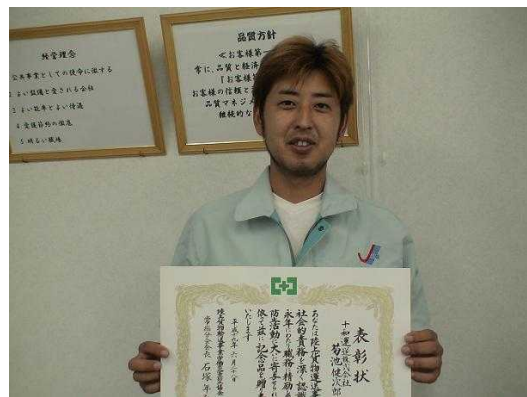 経営理念
公共事業としての使命に徹する
2.よい設備と愛される会社
3.よい能率とよい待遇
4.愛護節約の徹底
5.明るい職場
品質方針
≪お客様第一
常に、品質と経済
「お客様
お客様の信頼と
品質マネジメ
継続的な
表彰状
十和運送株式会社
菊池健次郎
あなたは陸上貨物運送事
社会的責務を深く認識
永年にわたり職務に精励
防止活動に大いに寄与せられ
依って茲に記念品を贈
いたします
平成十九年六月二十八日
陸上貨物運送事業労働災害防止協会
石塚